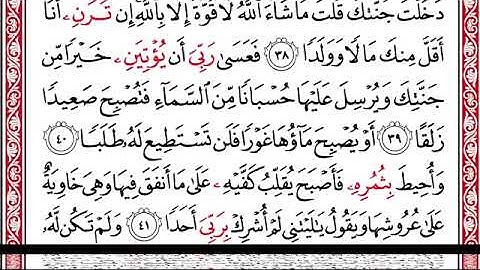 دَخَلْتَ جَنَّتَكَ قُلْتَ مَا شَآءَ ٱللَّهُ لَا قُوَّةَ إِلَّا بِٱللَّهِ إِن تَرَنِۦ أَنَا
أَقَلَّ مِنكَ مَالًا وَوَلَدًا ٣٨ فَعَسَىٰ رَبِّيَ أَن يُؤْتِيَنِۦ خَيْرًا مِّن
جَنَّتِكَ وَيُرْسِلَ عَلَيْهَا حُسْبَانًا مِّنَ ٱلسَّمَآءِ فَتُصْبِحَ صَعِيدًا
زَلَقًا ٣٩ أَوْ يُصْبِحَ مَآؤُهَا غَوْرًا فَلَن تَسْتَطِيعَ لَهُۥ طَلَبًا ٤٠
وَأُحِيطَ بِثُمُرِهِۦ فَأَصْبَحَ يُقَلِّبُ كَفَّيْهِۦ عَلَىٰ مَآ أَنفَقَ فِيهَا وَهِيَ خَاوِيَةٌ
عَلَىٰ عُرُوشِهَا وَيَقُولُ يَٰلَيْتَنِي لَمْ أُشْرِكْ بِرَبِّيَ أَحَدًا ٤١ وَلَمْ تَكُن لَّهُۥ